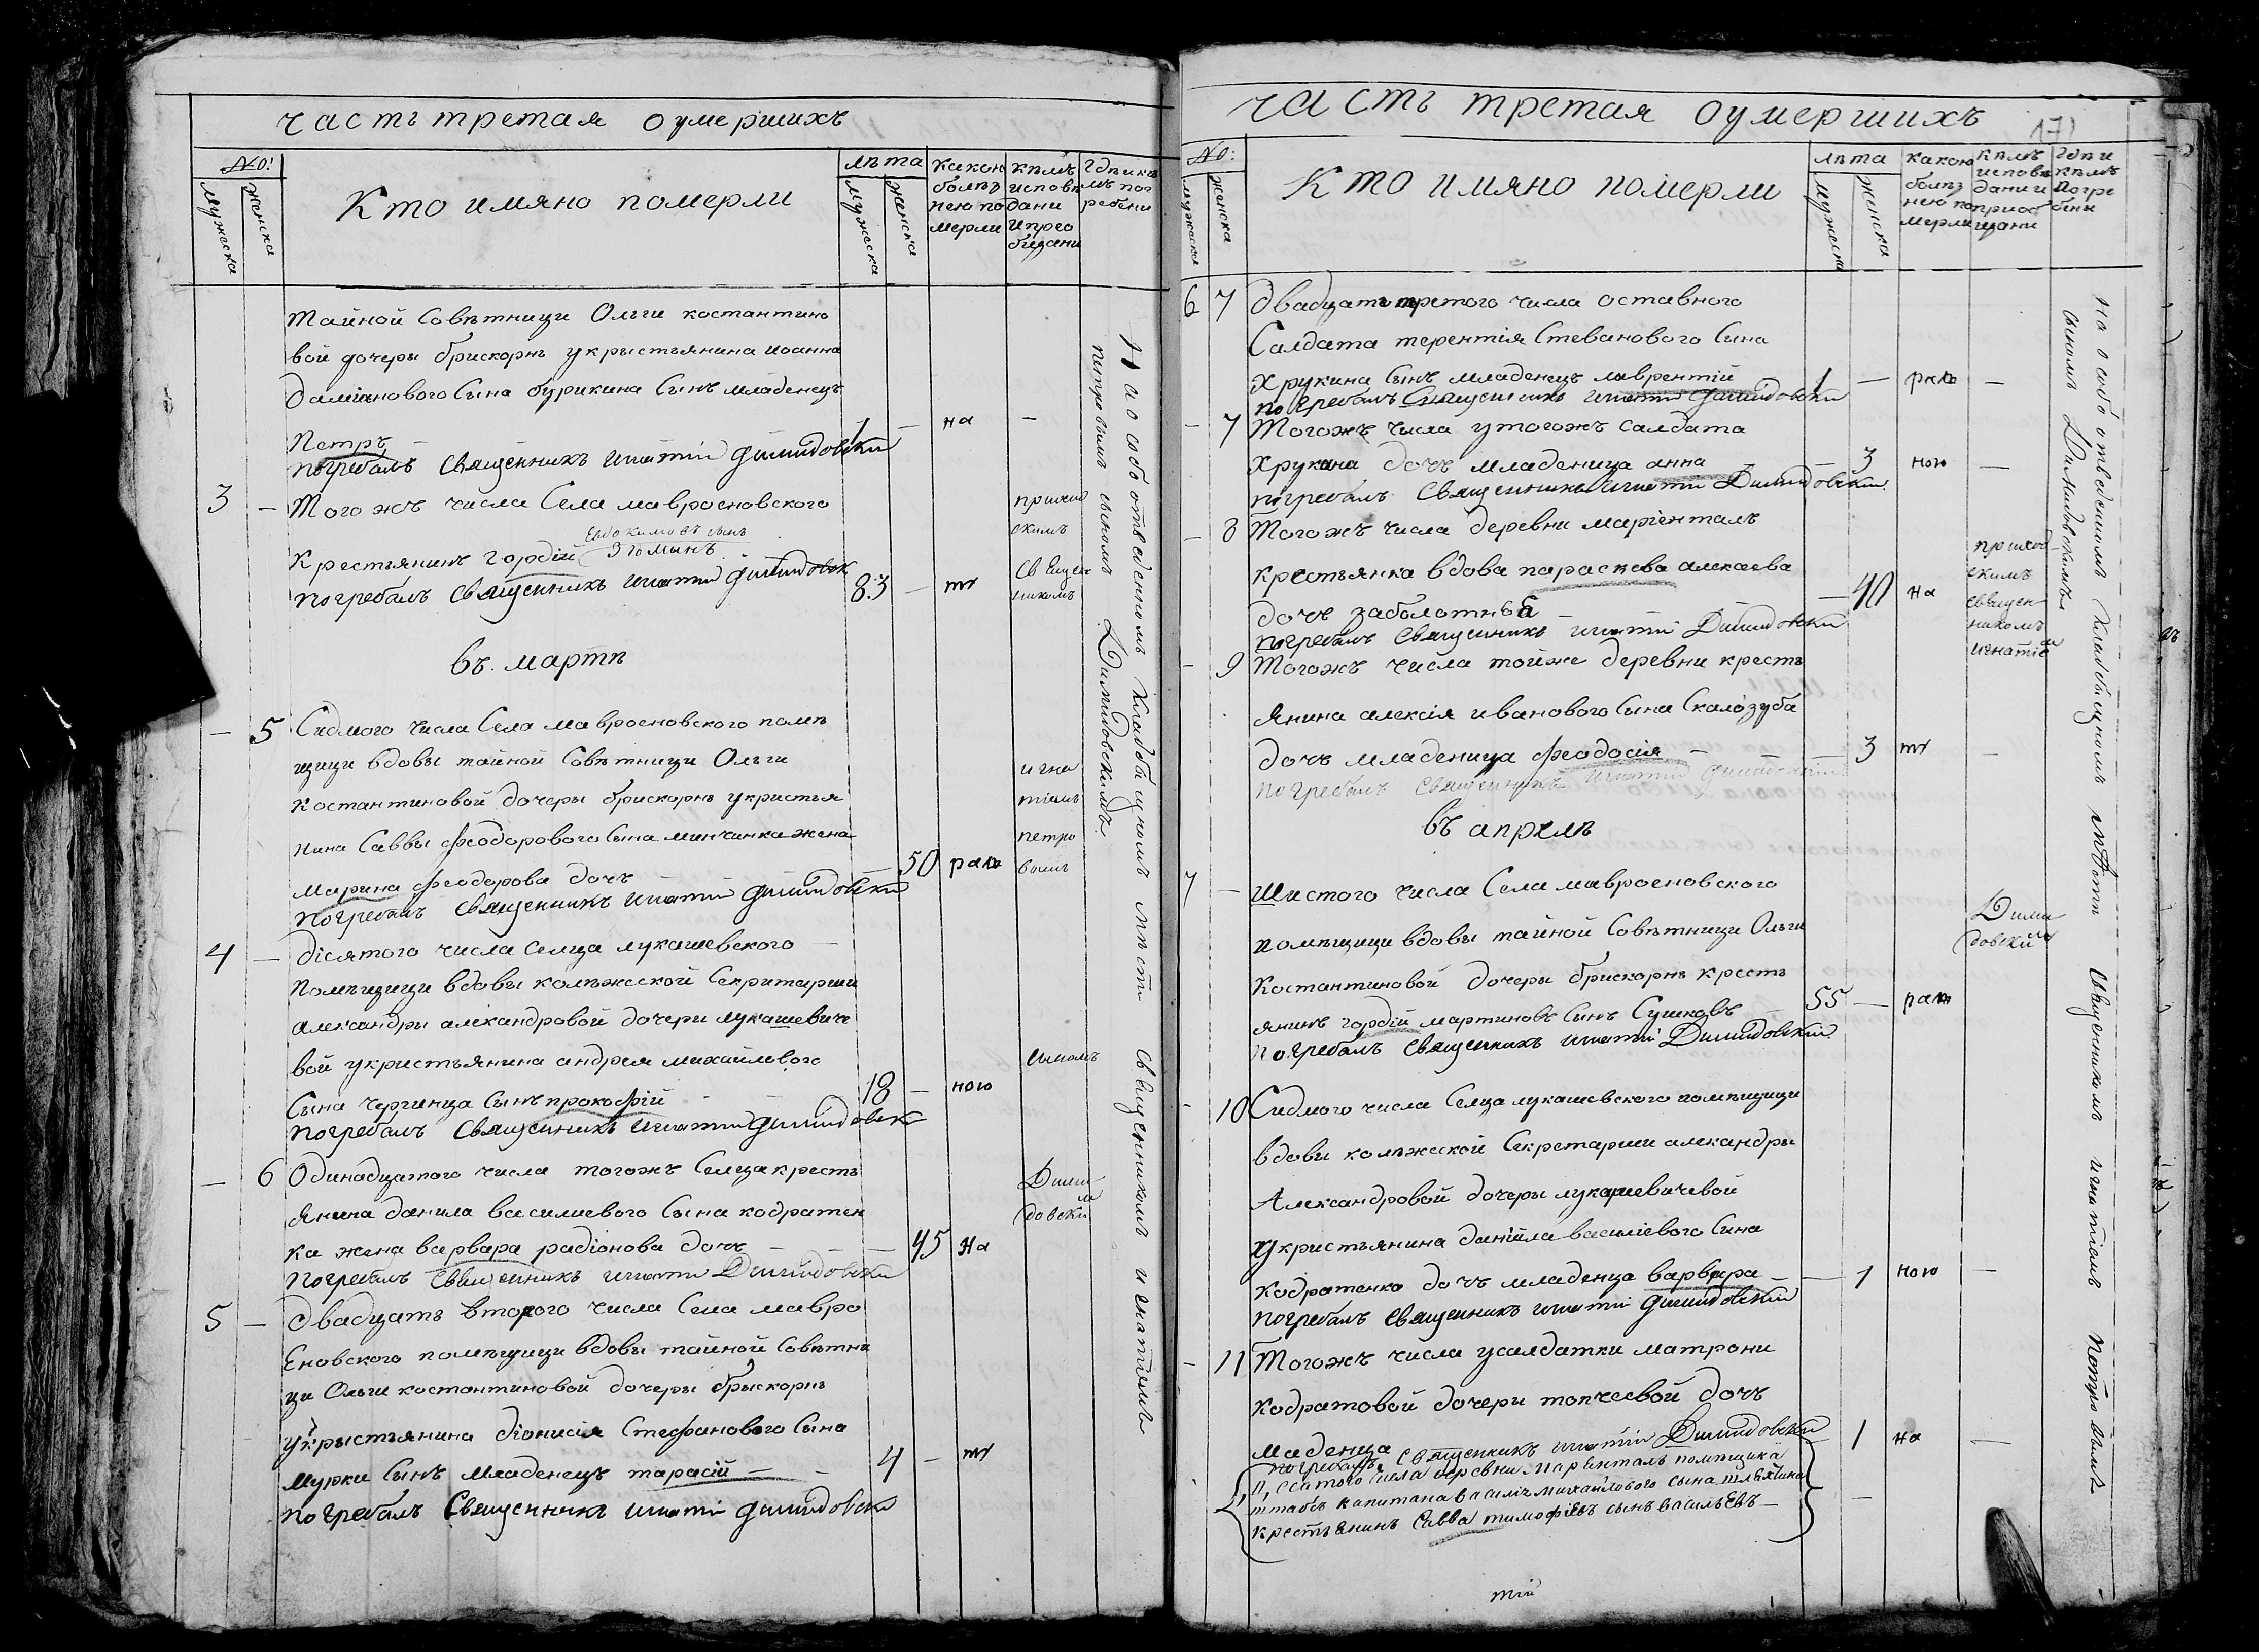 часть третая оумершихъ
№:
мужеска
женска
Кто имяно померли
лѣта
мужеска
женска
какою
болѣз
нею по
мерли
кѣмъ
исповѣ
дани
и прео
бщени
гдѣ и кѣ
мъ пог
ребени
Тайной Совѣтници Ольги костантино
вой дочеры брискорнъ укрыстьянина иоанна
Даміянового Сына бурикина Сынъ младенецъ
Петръ
1 — на —
погребалъ Священникъ Игнатій Димидовски
3 — Того жъ числа Села мавроеновского
Евдокимовъ сынъ
Крестьянинъ гордій
погребалъ Священникъ Игнатій Димидовск
83 — ту
приход
скимъ
Священ
никомъ
въ мартѣ
— 5 Сидмого числа Села мавроеновского помѣ
щици вдовы тайной Совѣтници Ольги
Костантиновой дочеры брискорнъ укристья
нина Саввы феодорового Сына минчинка жена
Марина феодорова дочъ
— 50 рак
погребалъ Священникъ Игнатій Димидовски
игна
тіемъ
петро
вымъ
4 — Дісятого числа Селца лукашевского
Помѣщици вдовы колѣжской Секритарши
Александры алекандровой дочери лукашевиче
вой укристьянина андрея михайлового
Сына чергинца Сынъ прокофій
18 — ною
погребалъ Священникъ Игнатій Димидовск
сыномъ
— 6 Одинадцатого числа тогожъ Селца кресть
янина данила василиевого Сына кодратен
ка жена варвара радіонова дочъ
— 45 на
погребалъ Священникъ Игнати Димидовски
Дими
довски
м
5 — Двадцать второго числа Села мавро
Еновского помѣщици вдовы тайной Совѣтни
ци Ольги костантиновой дочеры брыскорнъ
укрыстьянина діонисія Стефанового Сына
мурки Сынъ младенецъ тарасій —
4 — ту
погребалъ Священникъ Игнаті Димидовски
На особо отведенномъ Кладбищномъ мѣсти Священникомъ игнатіемъ
петровымъ сыномъ Димидовскимъ
часть третая оумершихъ
171
№:
мужеска
женска
Кто имяно померли
лѣта
мужеска
женска
какою
болѣз
нею по
мерли
кѣмъ
исповѣ
дани и
приоб
щани
Гдѣ и
кѣмъ
погре
бени
6 7 Двадцатъ третого числа оставного
Салдата терентія Стеванового Сына
Хрукина Сынъ младенецъ лаврентій
1 — рак —
погребалъ Священникъ Игнатій Димидовски
— 7 Тогожъ числа утогожъ салдата
Хрукина дочъ младеница анна
— 3 ною —
погребалъ Священникъ Игнатій Димидовски
— 8 Тогожъ числа деревни маріенталъ
крестьянка вдова параскева алекаева
дочъ заболотнвя
— 40 на
погребалъ Священникъ Игнатій Димидовски
приход
скимъ
священ
никомъ
игнатіе
м
— 9 Тогожъ числа тойже деревни кресть
янина алексія иванового Сына Скалозуба
дочъ младеница феодосія —
— 3 ту —
погребалъ Священникъ Игнатій Димидовски
въ апрелѣ
7 — Шистого числа Села мавроеновского
помѣщици вдовы тайной Совѣтници Ольги
Костантиновой дочеры брискорнъ кресть
янинъ гордій мартиновъ Сынъ Сушковъ
55 — рак
погребалъ Священникъ Игнатій Димидовский
Дими
довски
м
— 10 Сидмого числа Селца лукашевского помѣщици
вдовы колѣжской Секретарши алекандры
Александровой дочеры лукашевичевой
укристьянина даніила василіевого Сына
Кодратенко дочъ младенца варвара
— 1 ною —
погребалъ Священникъ Игнатій Димидовский
— 11 Тогожъ числа усалдатки матрони
кодратовой дочери топчеевой дочъ
младенца
— 1 на —
погребалъ Священникъ Игнатій Димидовски
числа деревни Маріенталъ помѣщика
штабсъ капитана василія михайлового сына
крестьянинъ Савва тимофіевъ сынъ васильевъ —
На особо отведенимъ Кладбищномъ мѣсти Священникомъ игнатіемъ Петровымъ
сыномъ Димидовскимъ
тій